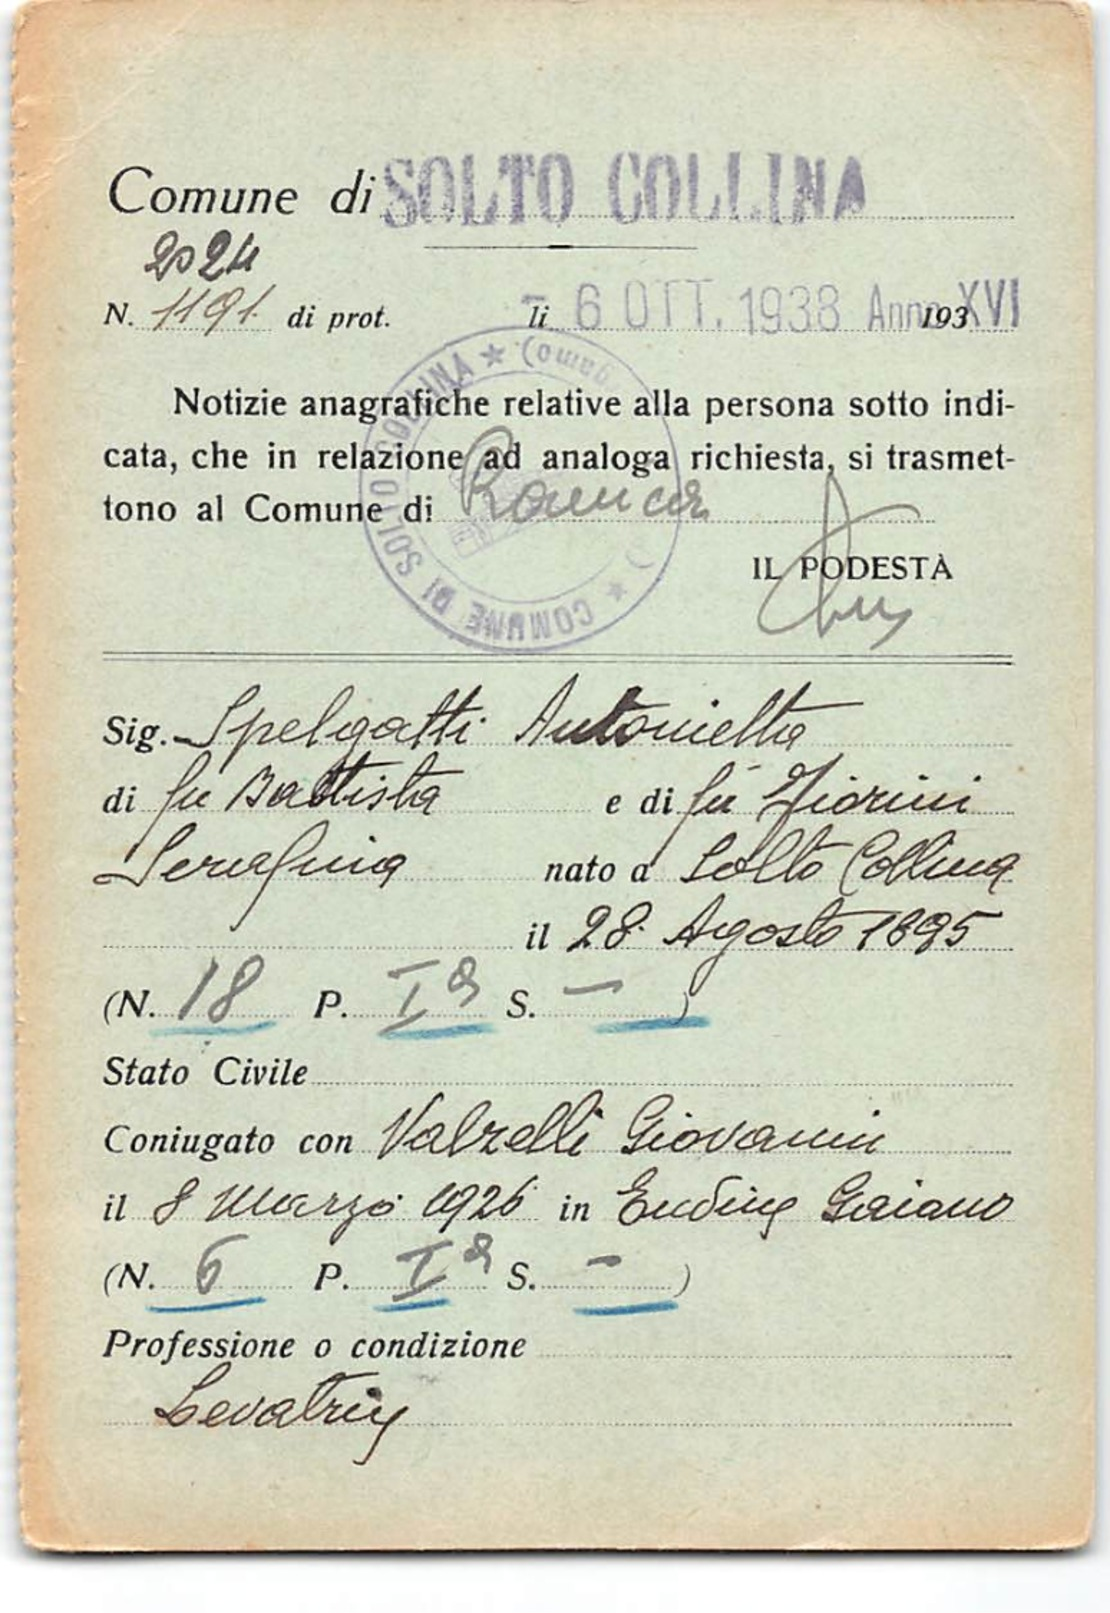 Comune di SOLTO COLLINA
2024
N. 1191 di prot. li - 6 OTT. 1938 Anno XVI 193
COMUNE DI SOLTO COLLINA
Notizie anagrafiche relative alla persona sotto indi-
cata, che in relazione ad analoga richiesta, si trasmet-
tono al Comune di Ranica
IL PODESTÀ
Sig. Spelgatti Antonietta
di fu Battista e di fu Fiorini
Serafina nato a Solto Collina
il 28 Agosto 1895
(N. 18 P. Iª S. — )
Stato Civile
Coniugato con Valzelli Giovanni
il 8 Marzo 1926 in Endine Gaiano
(N. 6 P. Iª S. — )
Professione o condizione
Levatrice